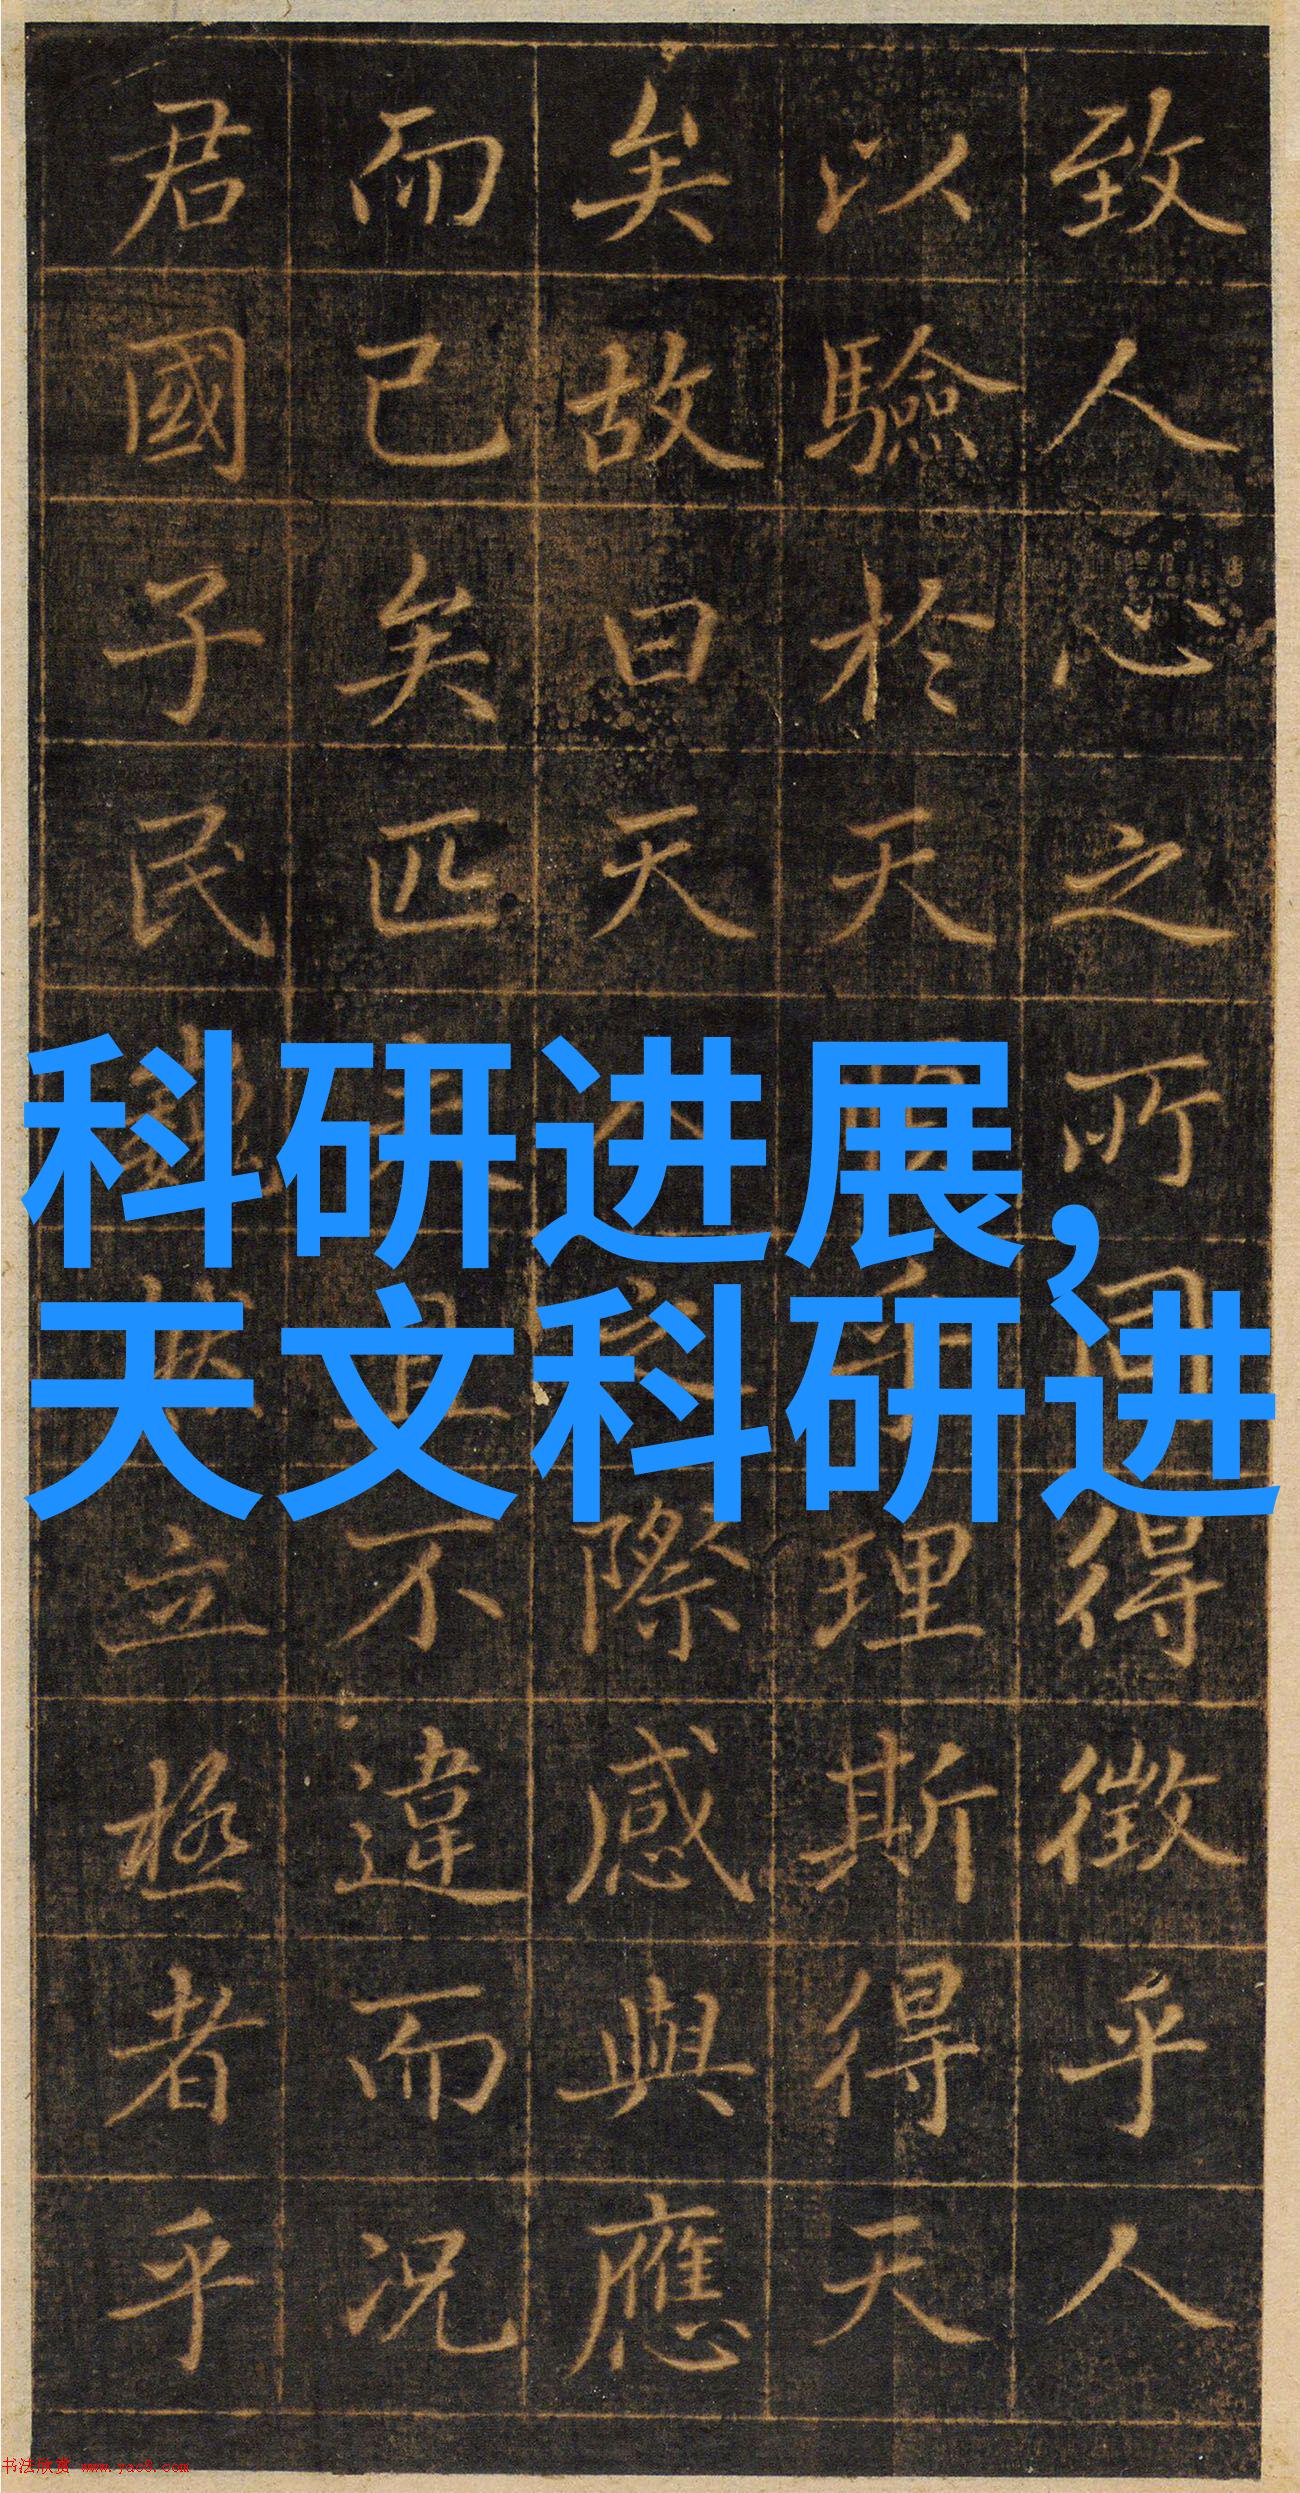 致人心之所同得徵乎人
以驗於天乎理斯得天
矣故曰天人之際感與應
而已矣匹夫且不違而況
君國子民巍然立極者乎
科研进展，
天文科研进
书法欣赏 www.yac8.com